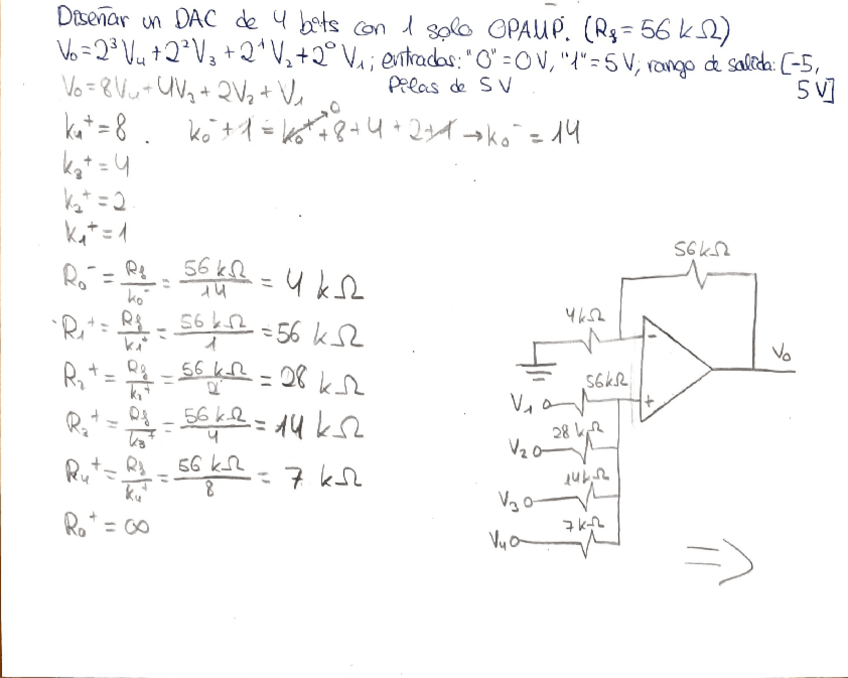 Diseñar un DAC de 4 bits con 1 solo OPAMP. (Rf = 56 kΩ)
V₀ = 2³V₄ + 2²V₃ + 2¹V₂ + 2⁰V₁; entradas: "0" = 0V, "1" = 5V; rango de salida: [-5, 5V]
V₀ = 8V₄ + 4V₃ + 2V₂ + V₁
Pilas de 5V
k₄⁺ = 8.
k₀⁻ + 1 = k₀⁺ + 8 + 4 + 2 + 1 → k₀⁻ = 14
0
k₃⁺ = 4
k₂⁺ = 2
k₁⁺ = 1
R₀⁻ = Rf/k₀⁻ = 56 kΩ/14 = 4 kΩ
R₁⁺ = Rf/k₁⁺ = 56 kΩ/1 = 56 kΩ
R₂⁺ = Rf/k₂⁺ = 56 kΩ/2 = 28 kΩ
R₃⁺ = Rf/k₃⁺ = 56 kΩ/4 = 14 kΩ
R₄⁺ = Rf/k₄⁺ = 56 kΩ/8 = 7 kΩ
R₀⁺ = ∞
56kΩ
4kΩ
-
V₀
56kΩ
V₁
+
28 kΩ
V₂
14kΩ
V₃
7kΩ
V₄
⇒